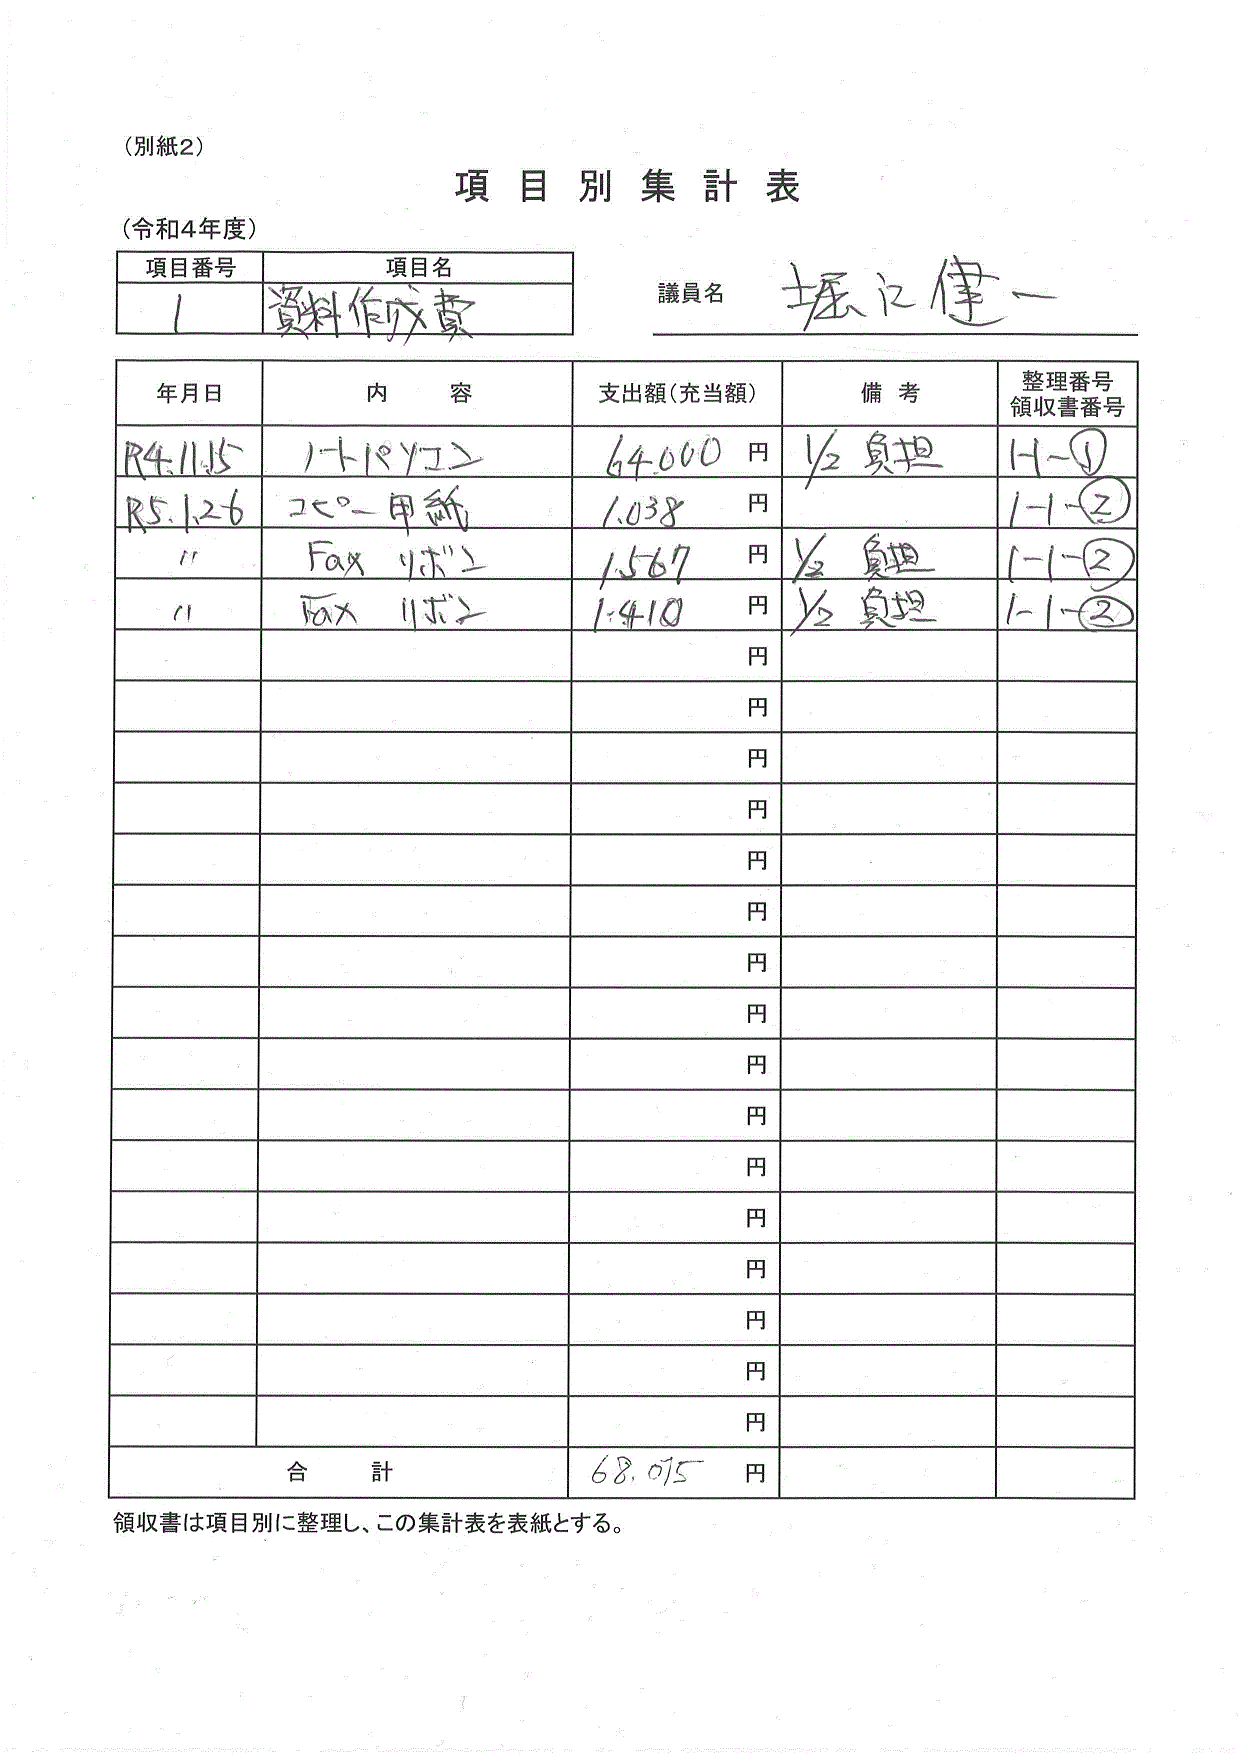 （別紙２）
項目別集計表
（令和４年度）
項目番号 項目名
1 資料作成費
議員名 堀江健一
年月日 内容 支出額（充当額） 備考 整理番号 領収書番号
R4.11.15 ノートパソコン 64.000 円 1/2 負担 1-1-①
R5.1.26 コピー用紙 1.038 円 1-1-②
〃 Fax リボン 1.567 円 1/2 負担 1-1-②
〃 Fax リボン 1.410 円 1/2 負担 1-1-②
円
円
円
円
円
円
円
円
円
円
円
円
円
円
円
円
合計 68.015 円
領収書は項目別に整理し、この集計表を表紙とする。